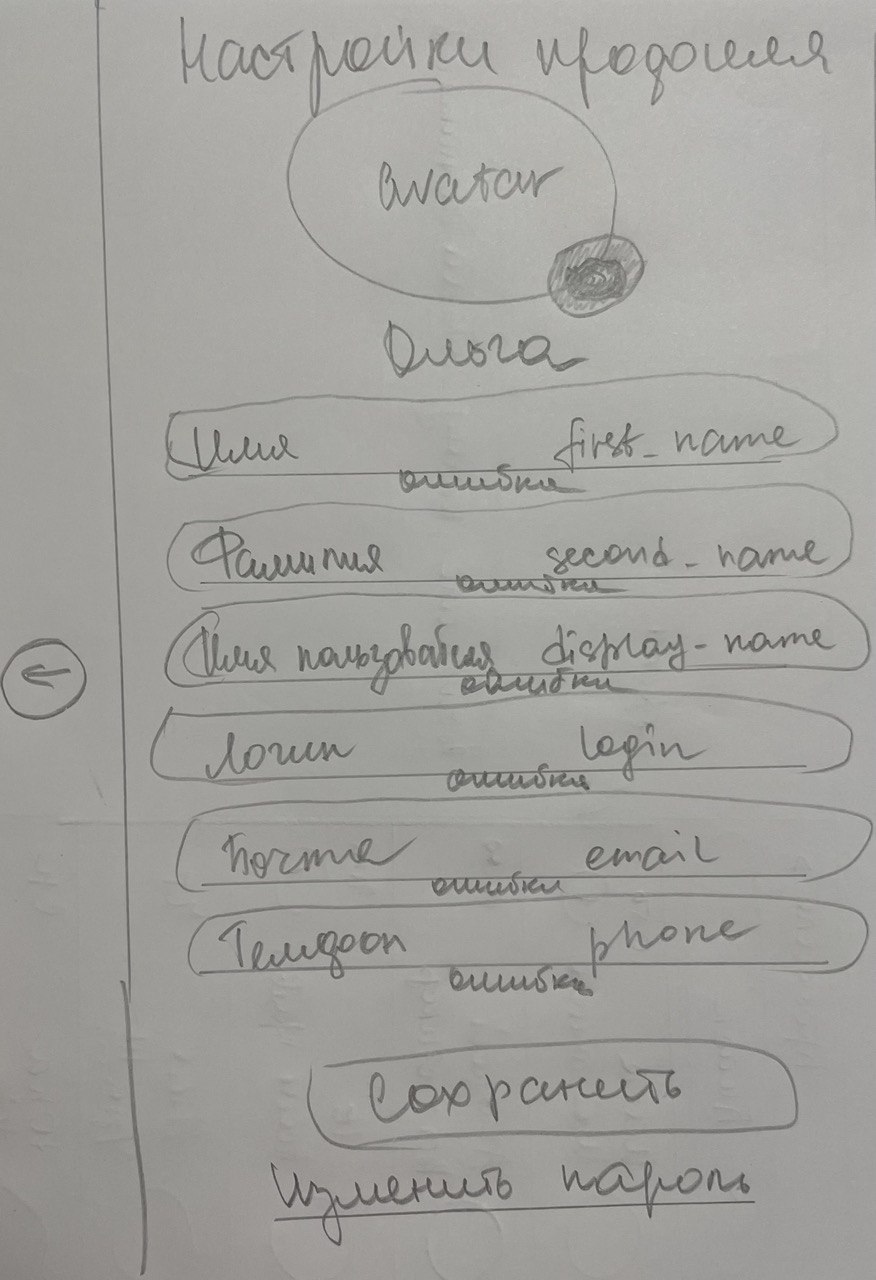 Настройки профиля
avatar
Ольга
Имя first_name
ошибка
Фамилия second_name
ошибка
Имя пользователя display_name
ошибки
Логин login
ошибка
Почта email
ошибки
Телефон phone
ошибка
Сохранить
Изменить пароль